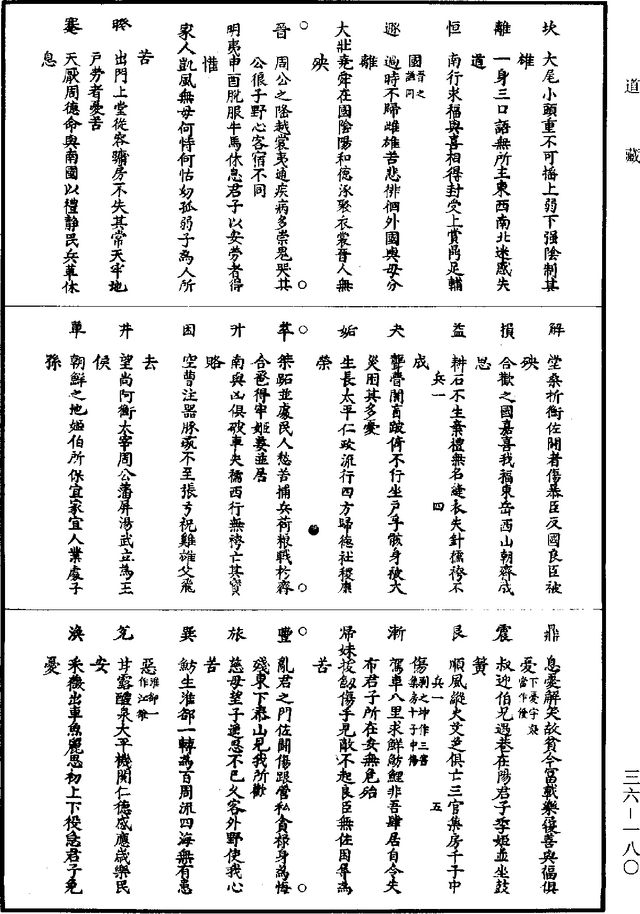 道藏
坎 大尾小頭重不可搖上弱下强陰制其
雄
離 一身三口語無所主東西南北迷惑失
道
恒 南行求福與喜相得封受上賞鼎足輔
國 晉之議同
遯 過時不歸雌雄苦悲徘徊外國與母分
離
大壯堯舜在國陰陽和德涿聚衣裳晉人無
殃
晉 周公之隆越裳夷通疾病多祟鬼哭其
公狼子野心客宿不同
明夷申酉脫服牛馬休息君子以安勞者得
懽
家人凱風無母何恃何怙幼孤弱子為人所
苦
睽 出門上堂從容牖房不失其常天牢地
戶勞者憂苦
蹇 天厭周德命與南國以禮靜民兵革休
息
解 堂桑折衝佐鬭者傷暴臣反國良臣被
殃
損 合歡之國嘉喜我福東岳西山朝齊成
恩
益 耕石不生棄禮無名縫衣失針襦袴不
成 兵一 四
夬 聾瞽闇盲跛倚不行坐戶乎骸身被大
災困其多憂
姤 生長太平仁政流行四方歸德社稷康
榮
萃 桀跖並處民人愁苦擁兵荷糧戰於齊
合邕得牢姬姜並居
升 南與凶俱破車失襦西行無袴亡其寶
賂
困 空曹注器豚彘不至張弓祝雞雄父飛
去
井 望尚阿衡太宰周公藩屏湯武立為王
侯
革 朝鮮之地姬伯所保宜家宜人業處子
孫
鼎 息憂解笑故貧今富載樂履善與福俱
憂 下憂字疑當作優
震 叔迎伯兄遇巷在陽君子季姬並坐鼓
簧
艮 順風縱火芝艾俱亡三官集房十子中
傷 剝之坤作三舊集房十子中傷 兵一 五
漸 駕車入里求鮮魴鯉非吾肆居自令失
布君子所在安無危殆
歸妹拔劔傷手見敵不起良臣無佐困辱為
苦
豐 亂君之門佐鬭傷跟營私貪祿身為悔
殘東下泰山見我所歡
旅 慈母望子遙思不已久客外野使我心
苦
巽 魴生淮郤一轉為百周流四海無有患
惡 淮郤一作江淮
兌 甘露醴泉太平機關仁德感應歲樂民
安
渙 采薇出車魚麗思初上下役急君子免
憂
三六—一八〇